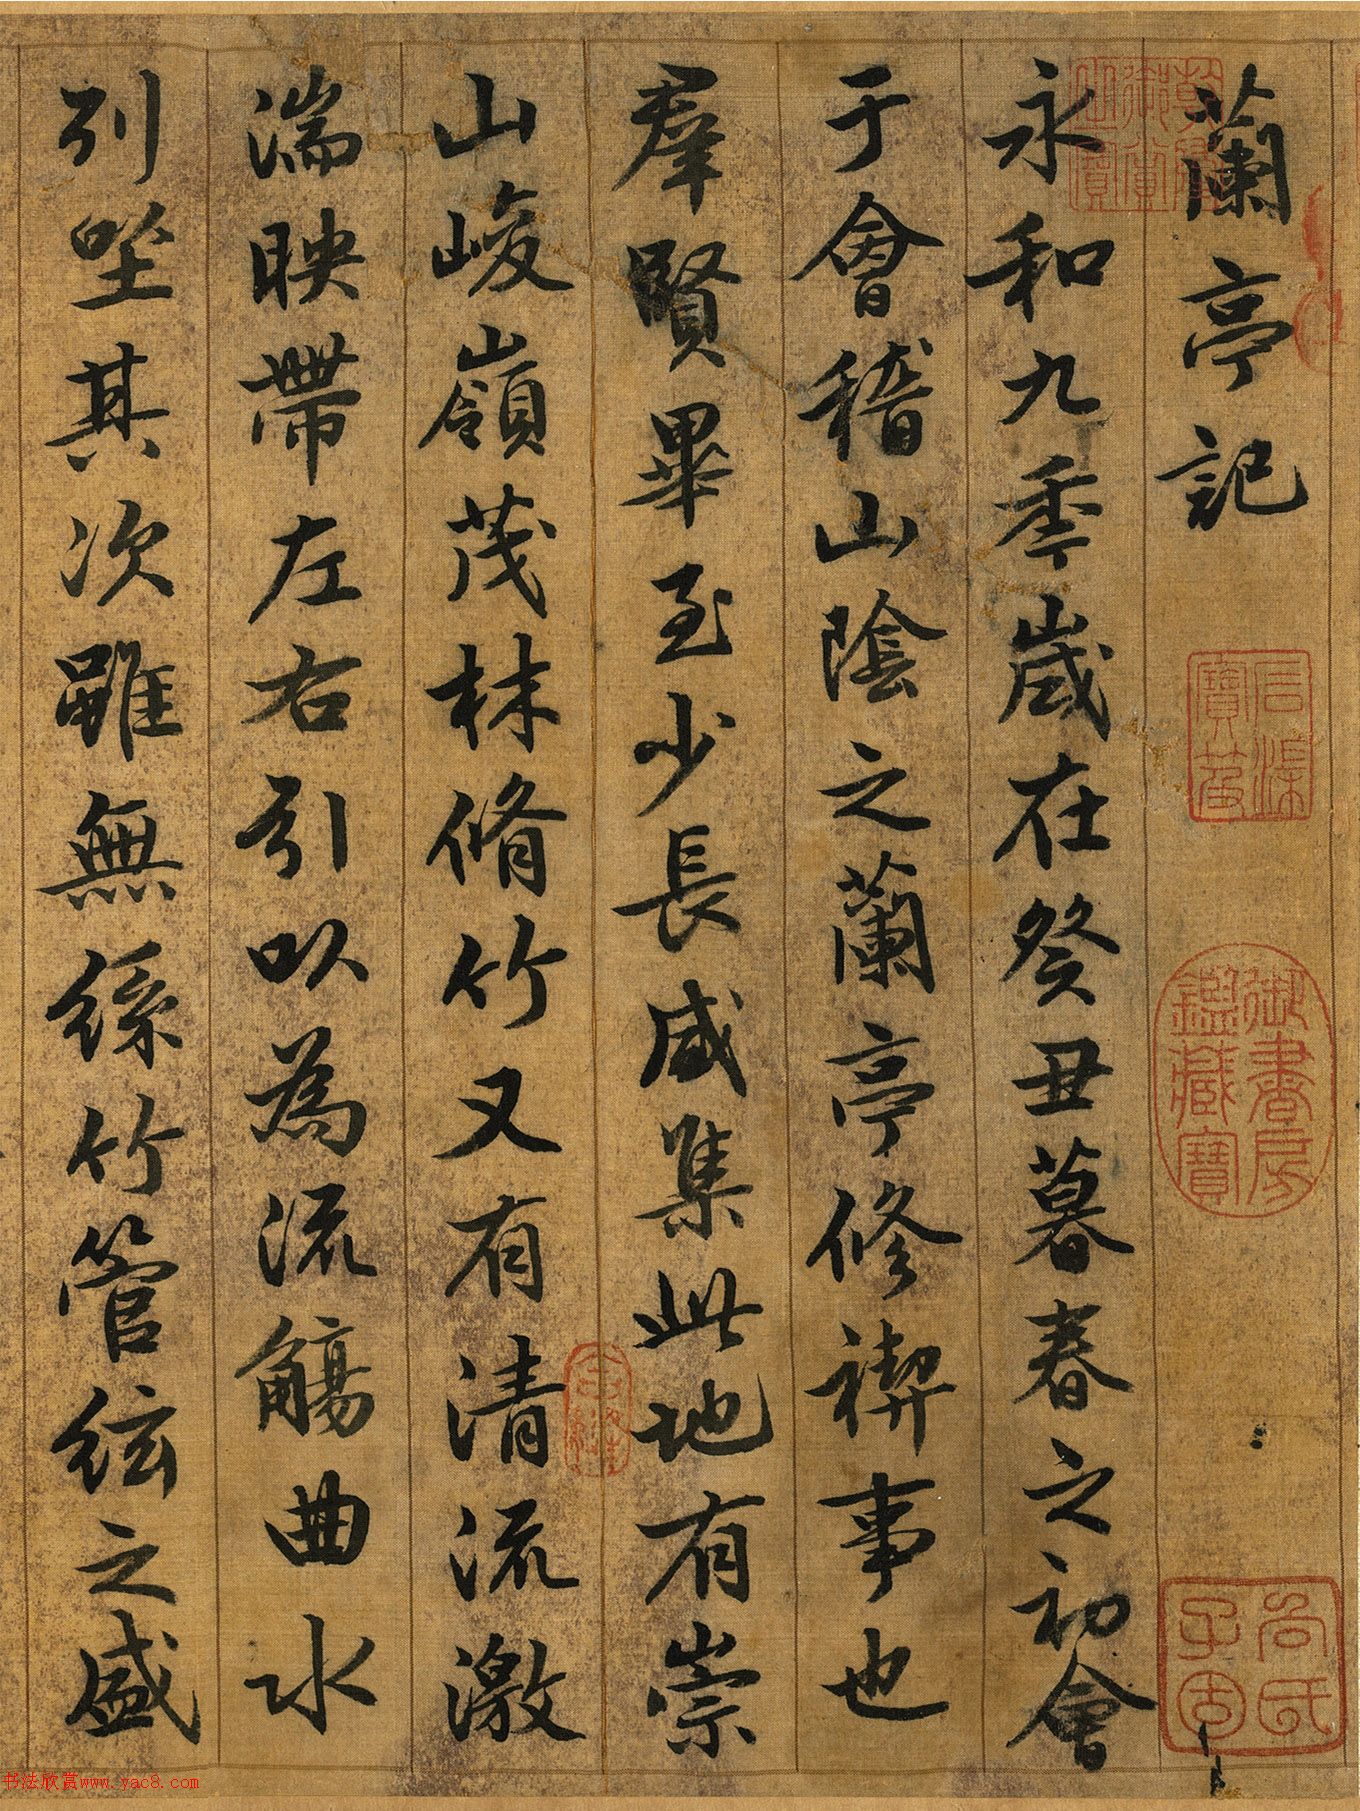 蘭亭記
永和九秊歲在癸丑暮春之初會
于會稽山陰之蘭亭修禊事也
羣賢畢至少長咸集此地有崇
山峻嶺茂林脩竹又有清流激
湍映帶左右引以為流觴曲水
列坐其次雖無絲竹管絃之盛
石渠寶笈
御書房鑑藏寶
书法欣赏www.yac8.com